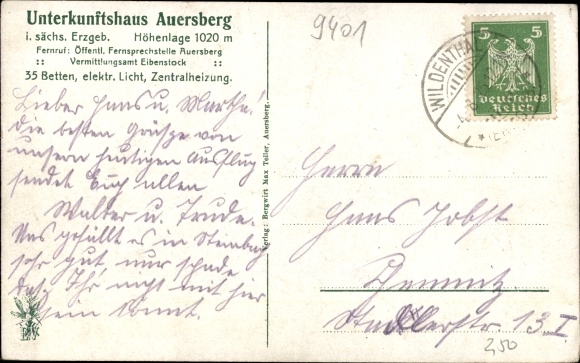 Unterkunftshaus Auersberg
i. sächs. Erzgeb. Höhenlage 1020 m
Fernruf: Öffentl. Fernsprechstelle Auersberg
:: Vermittlungsamt Eibenstock ::
35 Betten, elektr. Licht, Zentralheizung.
Lieber Hans u. Martha!
Die besten Grüße von
unserm heutigen Ausflug
sendet Euch allen
Walter u. Trude.
Uns gefällt es in
sehr gut nur schade
daß Ihr nicht mit hier
sein könnt.
Verlag: Bergwirt Max Teller, Auersberg.
9401
WILDENTHAL
5 5
Deutsches
Reich
Herrn
Hans Jobst
Chemnitz
13 I
250